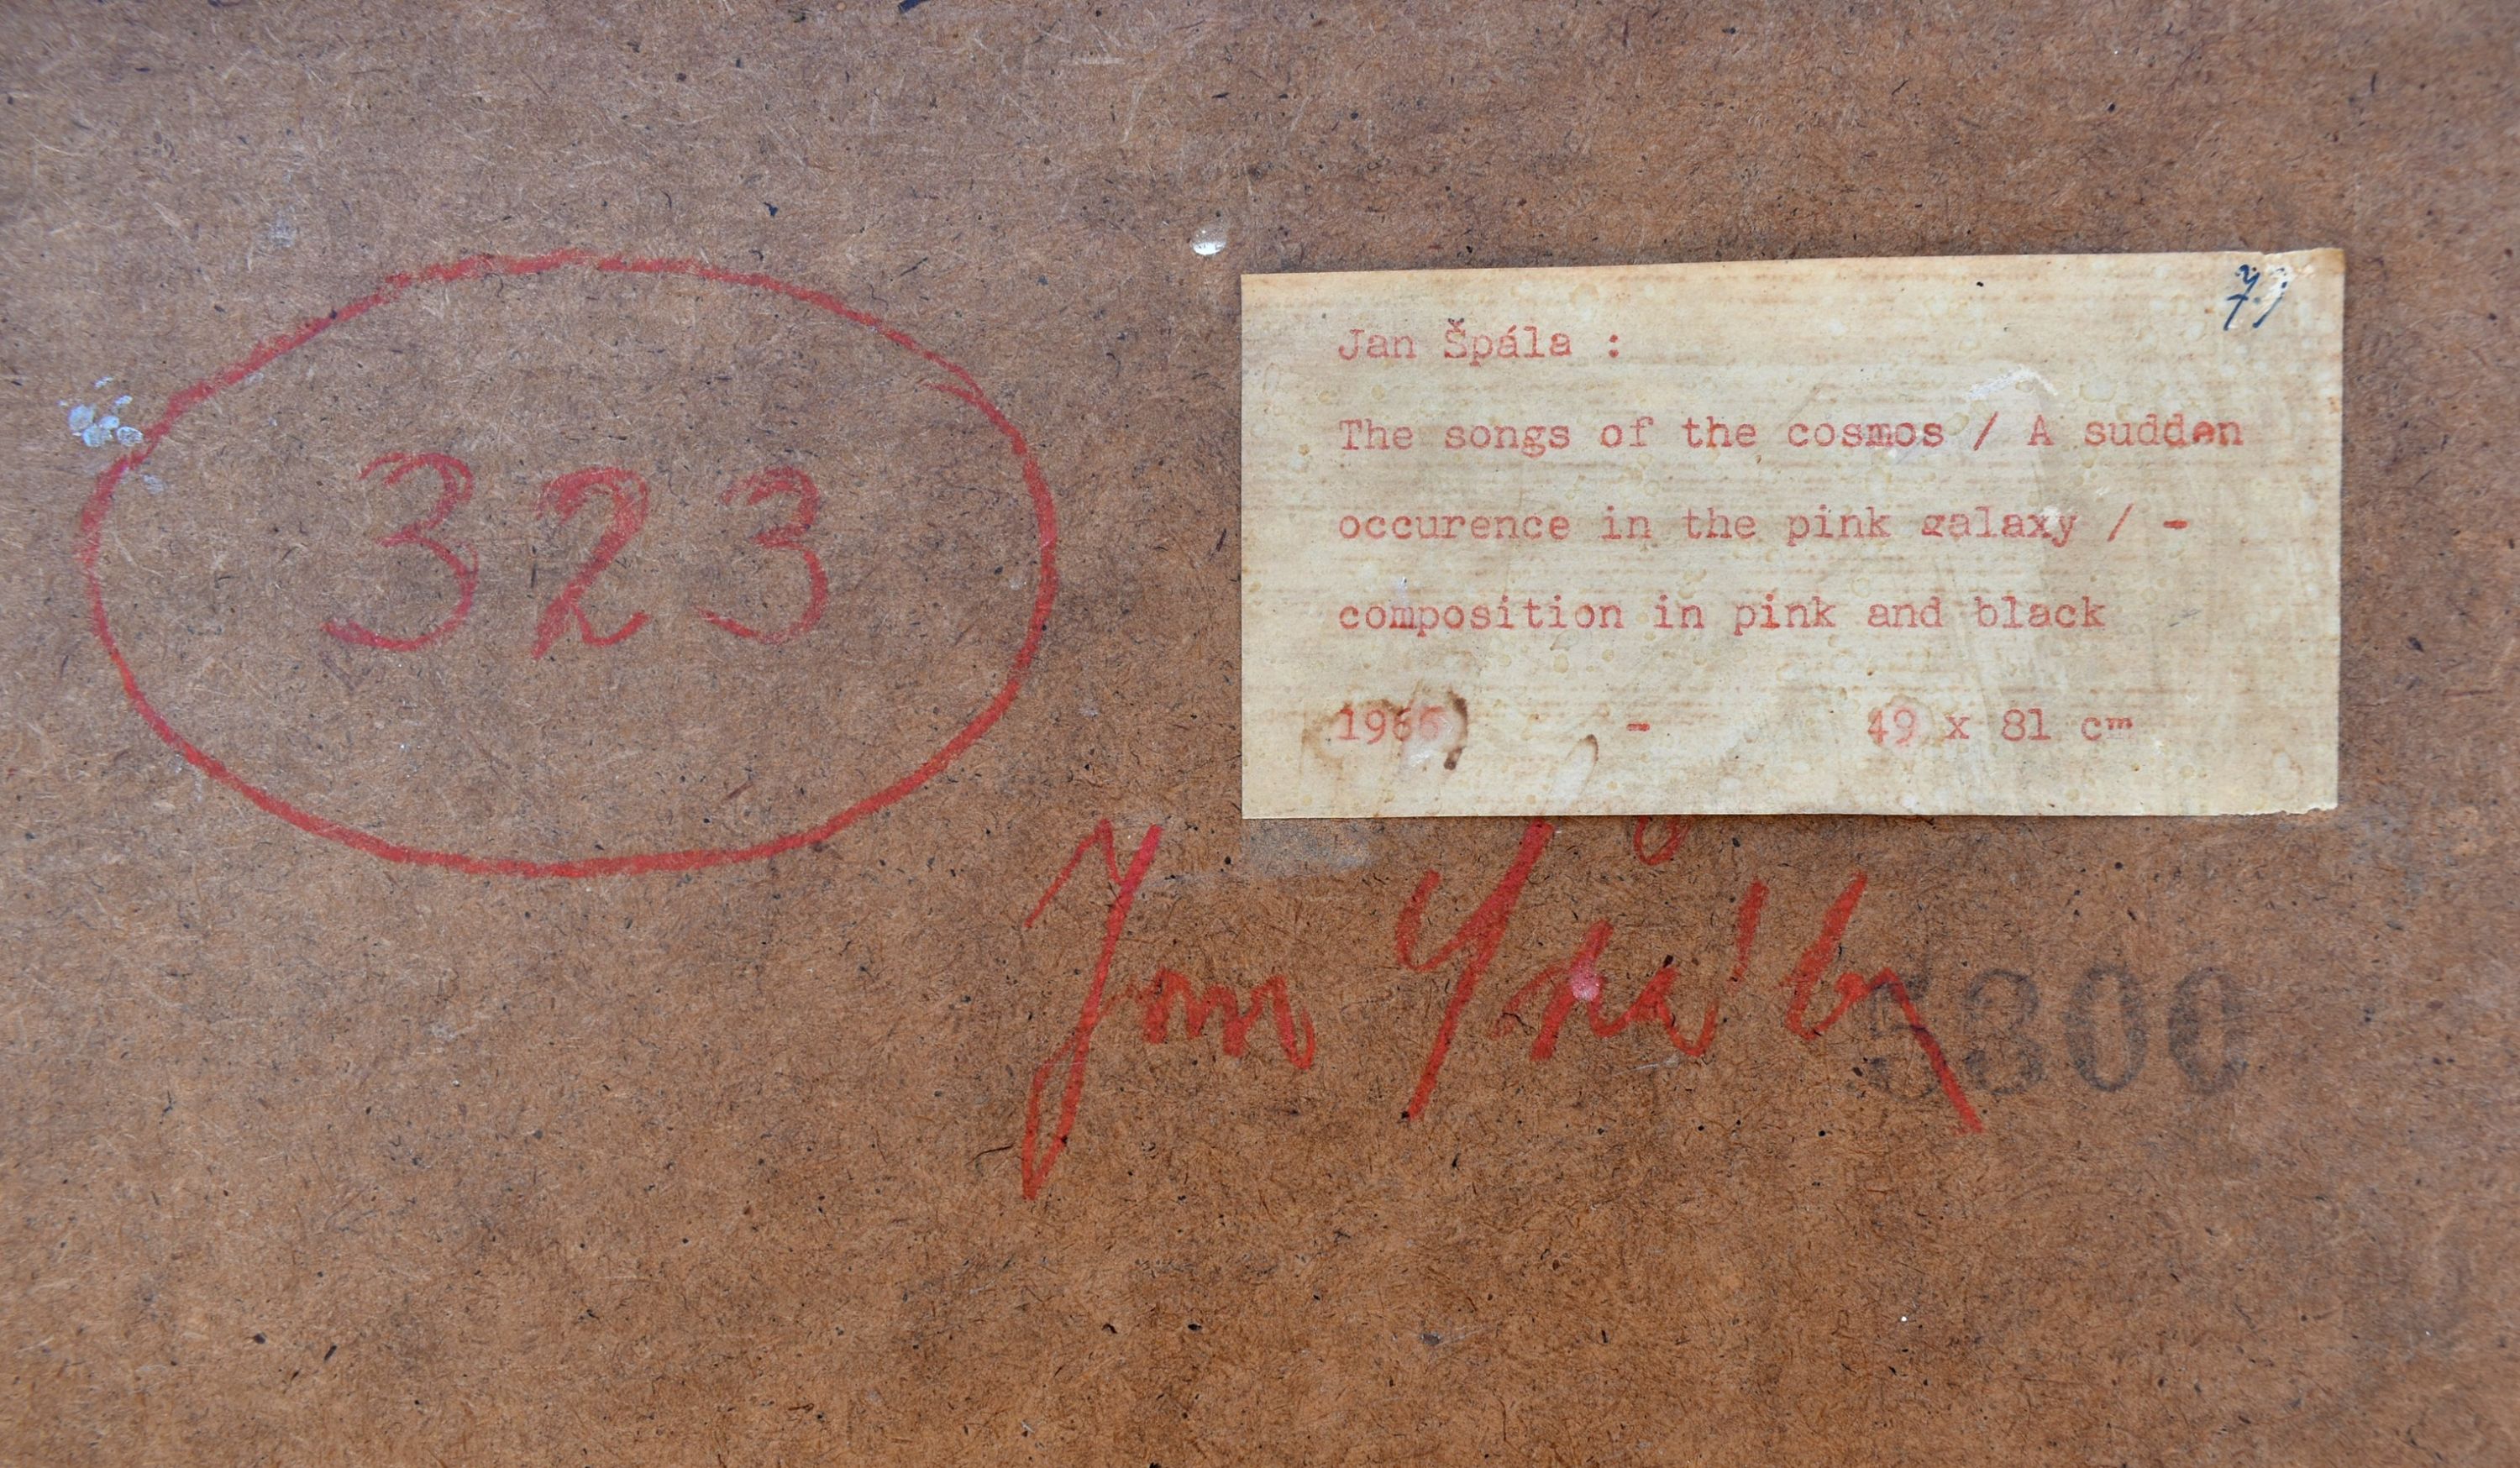 323
Jan Špála :
The songs of the cosmos / A sudden
occurence in the pink galaxy / -
composition in pink and black
1966 - 49 x 81 cm
Jan Špála